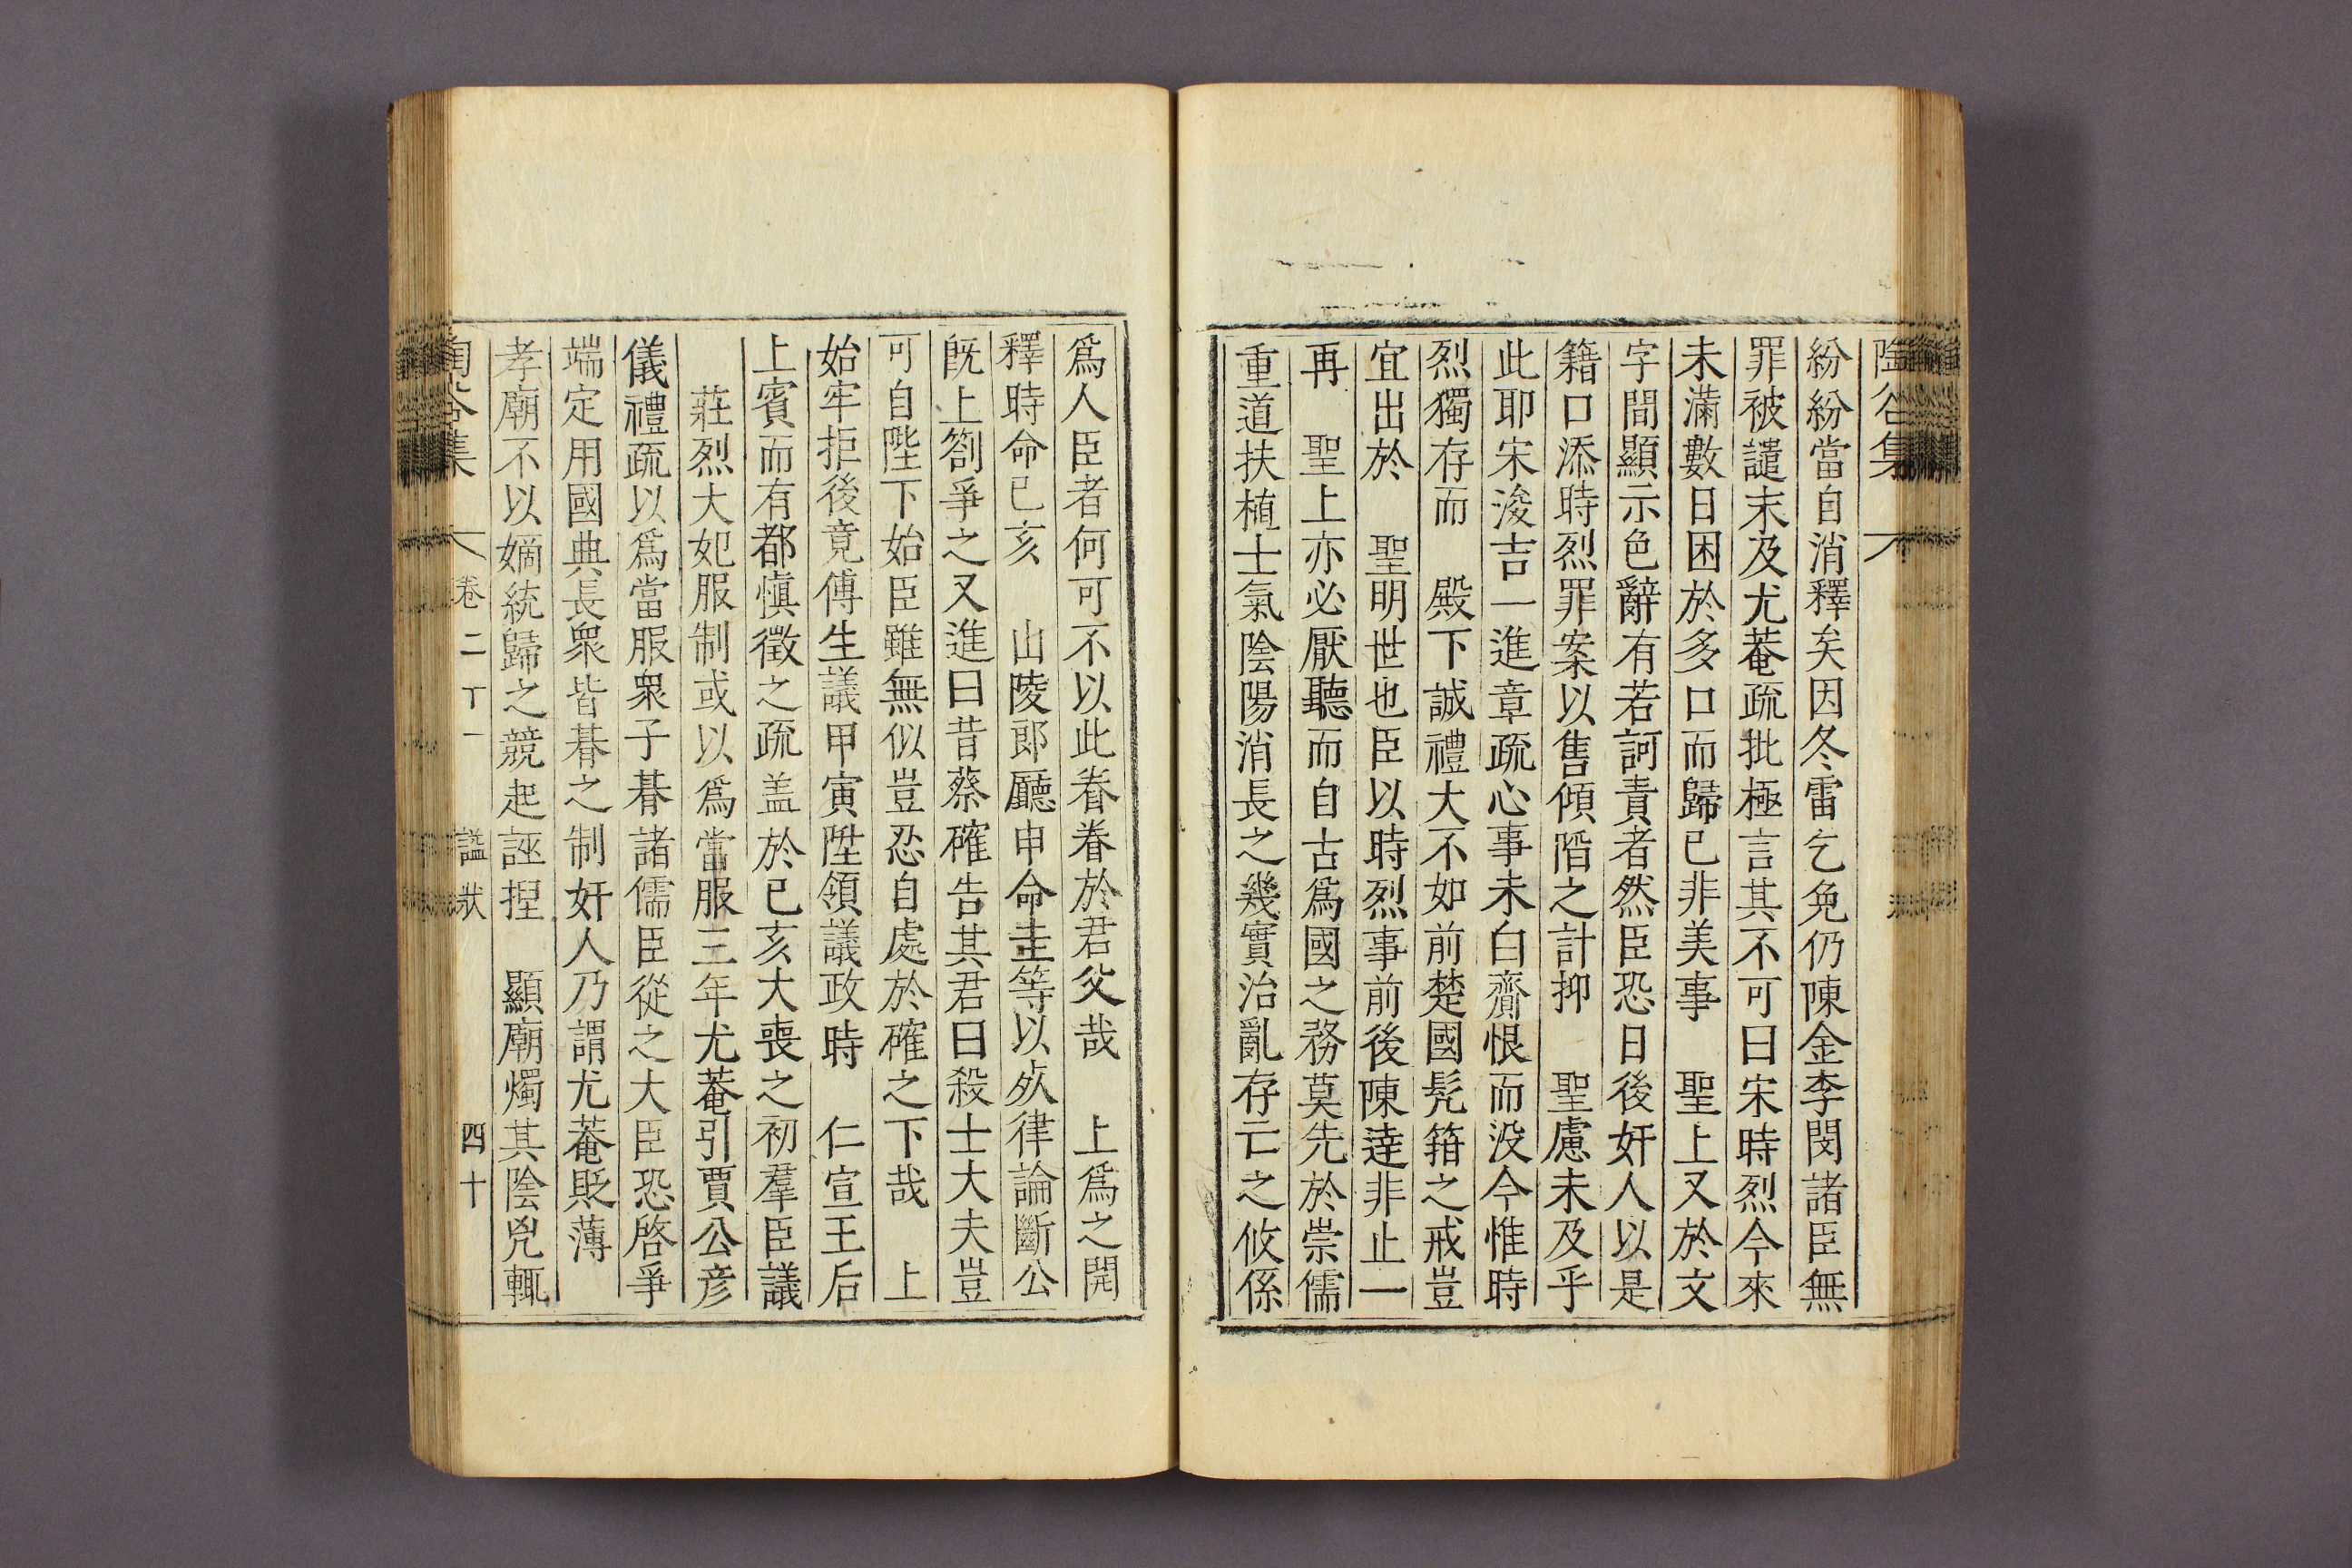 陶谷集
紛紛當自消釋矣因冬雷乞免仍陳金李閔諸臣無
罪被譴末及尤菴疏批極言其不可曰宋時烈今來
未滿數日困於多口而歸已非美事　聖上又於文
字間顯示色辭有若訶責者然臣恐日後奸人以是
籍口添時烈罪案以售傾陷之計抑　聖慮未及乎
此耶宋浚吉一進章疏心事未白齎恨而沒今惟時
烈獨存而　殿下誠禮大不如前楚國髡箝之戒豈
宜出於　聖明世也臣以時烈事前後陳達非止一
再　聖上亦必厭聽而自古爲國之務莫先於崇儒
重道扶植士氣陰陽消長之幾實治亂存亡之攸係
爲人臣者何可不以此眷眷於君父哉　上爲之開
釋時命己亥　山陵郎廳申命圭等以死律論斷公
旣上劄爭之又進曰昔蔡確告其君曰殺士大夫豈
可自陛下始臣雖無似豈忍自處於確之下哉　上
始牢拒後竟傅生議甲寅陞領議政時　仁宣王后
上賓而有都愼徵之疏盖於己亥大喪之初羣臣議
莊烈大妃服制或以爲當服三年尤菴引賈公彦
儀禮疏以爲當服衆子朞諸儒臣從之大臣恐啓爭
端定用國典長衆皆朞之制奸人乃謂尤菴貶薄
孝廟不以嫡統歸之競起誣捏　顯廟燭其陰兇輒
陶谷集　卷二十一　諡狀　四十